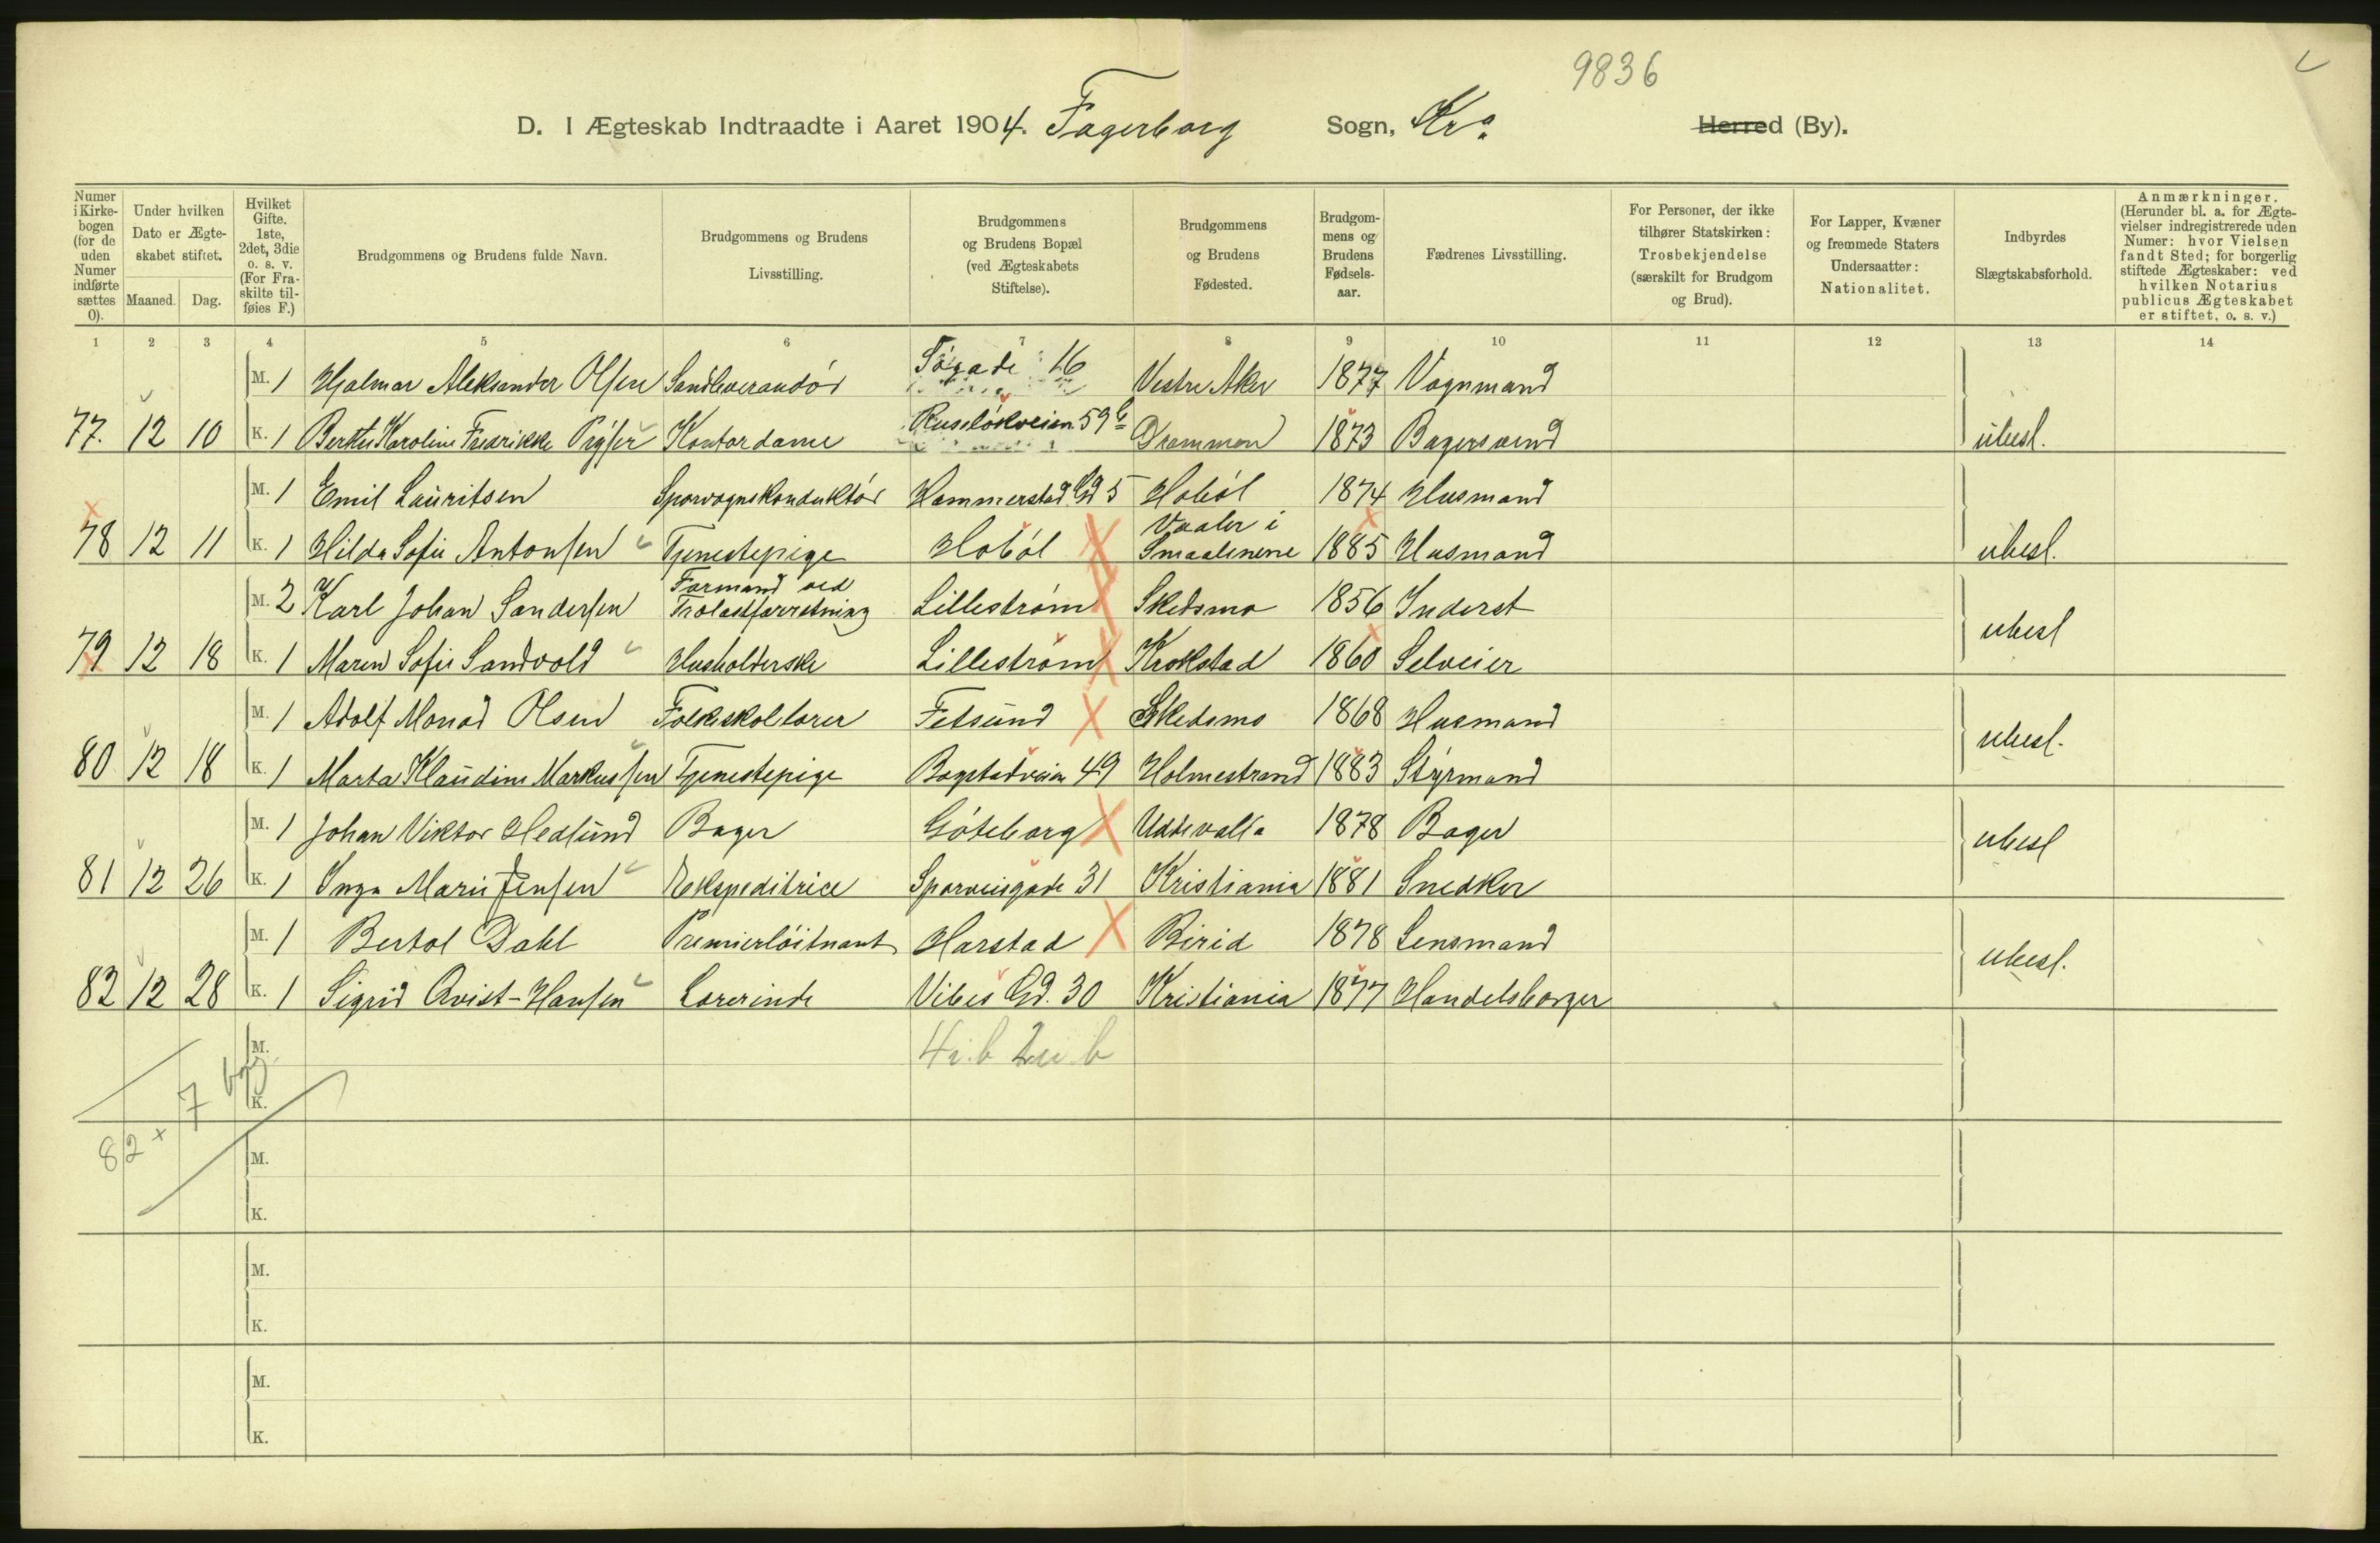 9836
D. I Ægteskab Indtraadte i Aaret 1904. Fagerborg Sogn, Kra Herred (By).
Numer i Kirke-bogen (for de uden Numer indførte sættes 0). Under hvilken Dato er Ægte-skabet stiftet. Maaned. Dag. Hvilket Gifte. 1ste, 2det, 3die o. s. v. (For Fra-skilte til-føies F.) Brudgommens og Brudens fulde Navn. Brudgommens og Brudens Livsstilling. Brudgommens og Brudens Bopæl (ved Ægteskabets Stiftelse). Brudgommens og Brudens Fødested. Brudgom-mens og Brudens Fødsels-aar. Fædrenes Livsstilling. For Personer, der ikke tilhører Statskirken: Trosbekjendelse (særskilt for Brudgom og Brud). For Lapper, Kvæner og fremmede Staters Undersaatter: Nationalitet. Indbyrdes Slægtskabsforhold. Anmærkninger. (Herunder bl. a. for Ægte-vielser indregistrerede uden Numer: hvor Vielsen fandt Sted; for borgerlig stiftede Ægteskaber: ved hvilken Notarius publicus Ægteskabet er stiftet, o. s. v.)
1 2 3 4 5 6 7 8 9 10 11 12 13 14
M. 1 Hjalmar Aleksander Olsen Sandleverandör 16 Vestre Aker 1877 Vognmand
77. 12 10 K. 1 Karoline Fredrikke Kontordame Ruselökveien 59 b Drammen 1873 Bagersvend ubesl.
M. 1 Emil Lauritsen Sporvognskonduktör Hammerstad Gd 5 Haböl 1874 Husmand
78 12 11 K. 1 Hilda Sofie Antonsen Tjenestepige Hoböl Vaaler i Smaalenene 1885 Husmand ubesl.
M. 2 Karl Johan Sandersen Formand ved Trælastforretning Lilleström Skedsmo 1856 Inderst
79 12 18 K. 1 Maren Sofie Sandvold Husholderske Lilleström Krokstad 1860 Selveier ubesl
M. 1 Adolf Monad Olsen Folkeskolelærer Fetsund Skedsmo 1868 Husmand
80 12 18 K. 1 Marta Klaudine Markussen Tjenestepige Bogstadveien 49 Holmestrand 1883 Styrmand ubesl.
M. 1 Johan Viktor Hedlund Bager Göteborg Uddevalla 1878 Bager
81 12 26 K. 1 Inga Marie Jensen Ekspeditrice Sporveisgade 31 Kristiania 1881 Snedker ubesl
M. 1 Bertol Dahl Premierlöitnant Harstad Birid 1878 Lensmand
82 12 28 K. 1 Sigrid Qvist-Hansen Lærerinde Vibes Gd. 30 Kristiania 1877 Handelsborger ubesl.
M.
K. 7
82 x
M.
K.
M.
K.
M.
K.